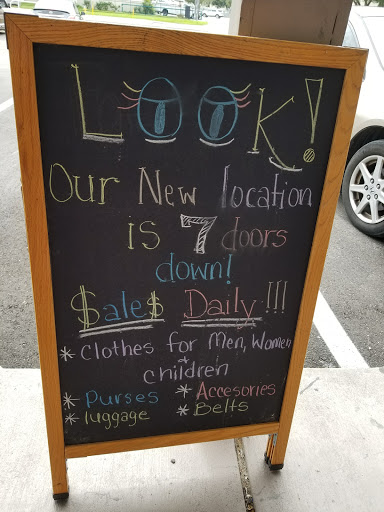 LOOK!
Our New location
is 7 doors
down!
$ale$ Daily!!!
* Clothes for Men, Women
& children
* Purses * Accesories
* luggage * Belts